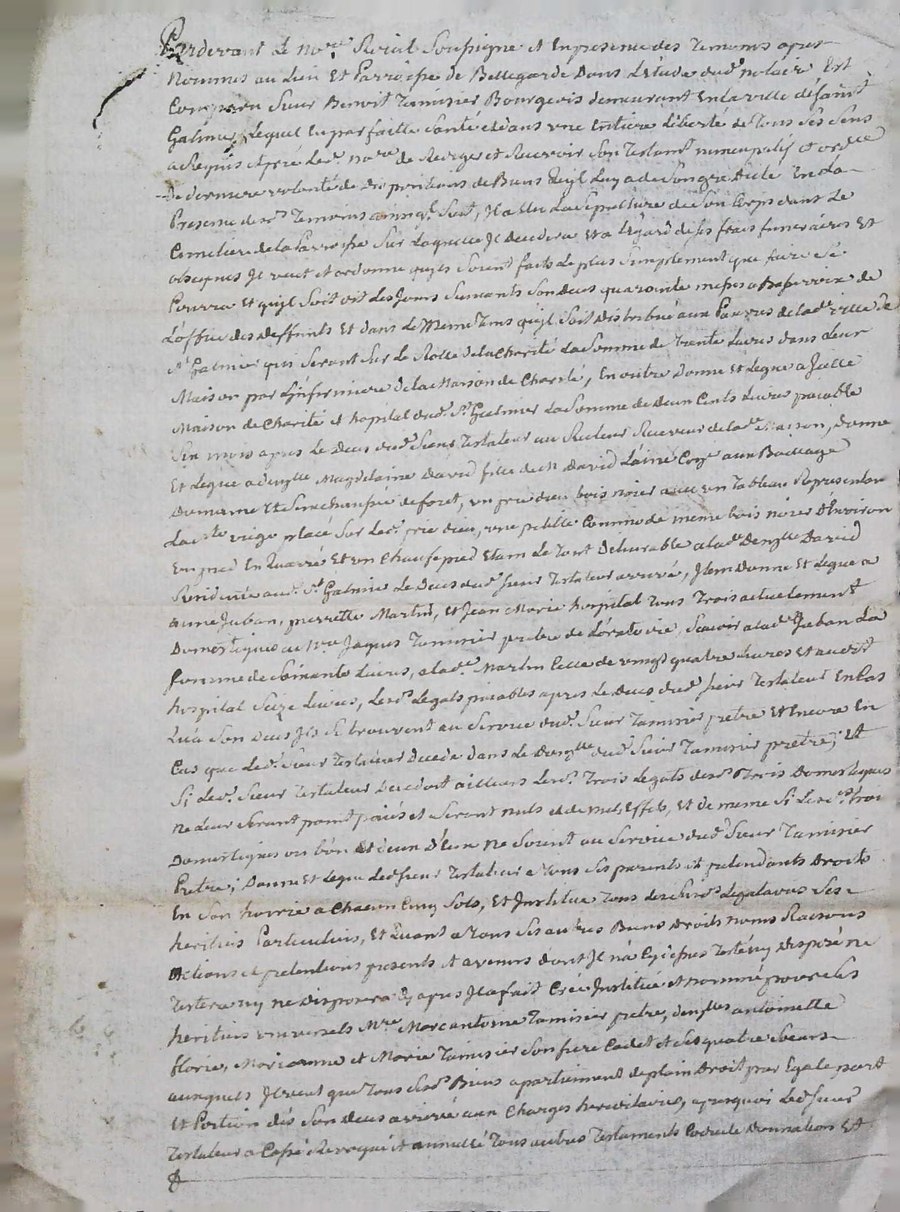 Pardevant Le no.re Roial Soussigne et En presence des Temoins apres
Nommes au Lieu Et Parroisse de Bellegarde Dans L'etude dud. notaire Est
Comparu Sieur Benoit Tamisier Bourgeois demeurant En la ville de Saint
Galmier, Lequel En parfaitte Santé et dans une Entiere Liberte de Tous Ses Sens
a Requis et prié Led. no.re de Rediger et Recevoir Son Testam.t nuncupatif et ord.ce
De derniere volonté de Dispositions de Biens
Presence des.d Temoins Il a Elu La Sepulture de Son Corps dans Le
Cimetiere de la Parroisse Sur Laquelle Il decedera et a L'egard de ses frais funeraires Et
obseques Il veut et ordonne qu'ils Soient faits Le plus Simplement que faire Se
Pourra Et qu'il Soit dit Les Jours Suivants Son deces quarante messes a Basse voix de
L'office des Deffunts Et dans Le Meme Tems qu'il Soit Distribué aux Pauvres de lad. ville de
S.t Galmier qui Seront Sur Le Rolle de la Charité La Somme de Trente Livres dans Leur
Maison par L'infirmiere de la Maison de Charité, En outre Donne et Legue a Jcelle
Maison de Charité et hopital dud. S.t Galmier La Somme de Deux Cents Livres paiable
Six mois apres Le Deces dud. Sieur Testateur au Recteur Receveur de lad. Maison, Donne
Et Legue a D.elle Magdelaine David fille de M. David L'ainé Con.r aux Baillage
Domaine Et Senechaussée de foret, un prie dieu bois noier avec un Tableau Representant
La S.te vierge placé Sur Led. prie dieu, une petite Commode meme bois noier D'Environ
un pied En quarré Et un Chaufepied Etam Le Tout Delivrable a lad. Dem.lle David
Rendue aud. S.t Galmier Le Deces dud. Sieur Testateur arrivé, Jtem Donne Et Legue a
anne Juban, pierrette Martin, Et Jean Marie hospital Tous Trois actuellement
Domestiques de M.re Jaques Tamisier pretre de L'oratoire, Scavoir a lad. Juban La
Somme de Soixante Livres, a lad. Martin Celle de vingt quatre Livres et aud.t
hospital Seize Livres, Lesd. Legats paiables apres Le Deces dud. Sieur Testateur En Cas
qu'a Son Deces Ils Se trouvent au Service dud. Sieur Tamisier pretre Et Encore En
Cas que Led. Sieur Testateur Decede Dans Le Dom.lle dud. Sieur Tamisier pretre; Et
Si Led. Sieur Testateur Decedoit ailleurs Lesd. Trois Legats desd. Trois Domestiques
ne Leur Seront point paiés et Seront nuls et de nul Effet, Et de meme Si Lesd. trois
Domestiques ou L'un D'Eux ne Soient au Service dud. Sieur Tamisier
Pretre; Donne Et Legue Led. Sieur Testateur a Tous Ses parents et pretendants Droits
En Son hoirie a Chacun Cinq Sols, Et Jnstitue Tous Lesd. Legataires Ses
heritiers Particuliers, Et Quant a Tous Ses autres Biens Droits noms Raisons
actions et pretentions presents et avenirs dont Il n'a Cy dessus Testé ny Disposé ne
Testera ny ne Disposera Cy apres Il a fait Créé Jnstitué et nommé pour Ses
heritiers universels M.re Marc antoine Tamisier pretre, dem.lles antoinette
florie, Marianne et Marie Tamisier Son frere Cadet et Ses quatre Soeurs
auxquels Il veut que Tous Sesd. Biens apartiennent de plain Droit par Egale part
Et Portion dès Son deces arrivé aux Charges hereditaires, apres quoi Led. Sieur
Testateur a Cassé Revoqué et annullé Tous autres Testaments Codicile Donnations Et